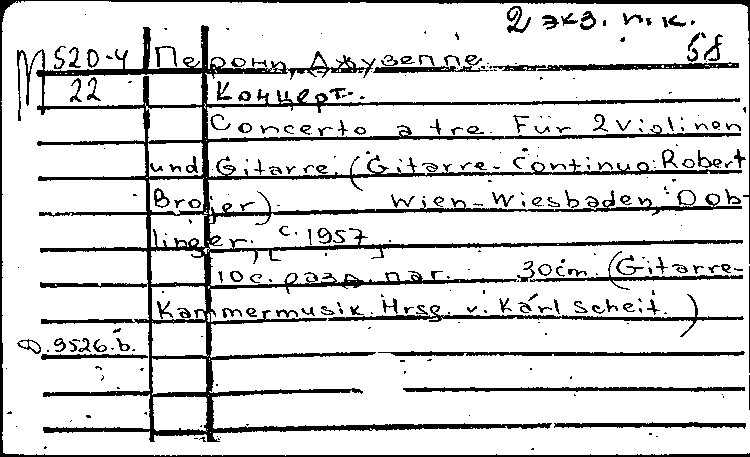 2 экз. п.к.
М 520-4 Перони, Джузеппе. 58
22 Концерт.
Concerto a tre. Für 2 Violinen
und Gitarre. (Gitarre-Continuo: Robert
Brojer). Wien-Wiesbaden, Dob-
linger, [c. 1957].
10 с. разд. паг. 30 cm. (Gitarre-
Kammermusik. Hrsg. v. Karl Scheit.)
D. 9526. b.